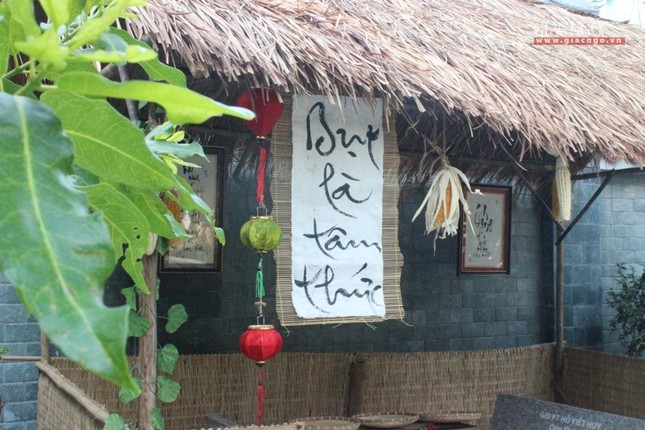 www.giacngo.vn
Bụt
là
tâm
thức
GĐPT HỒ VIẾT HUY